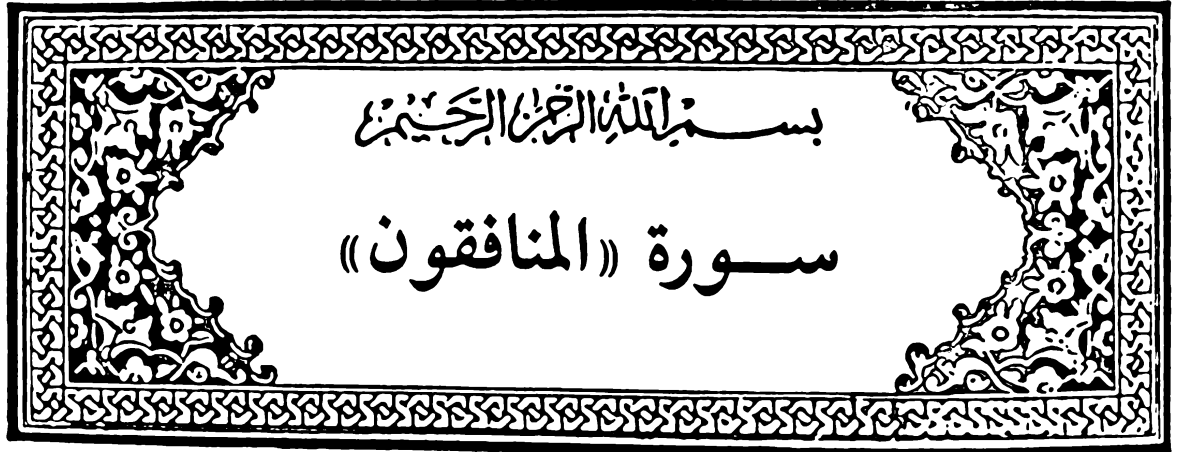 بسم الله الرحمن الرحيم
سورة «المنافقون»